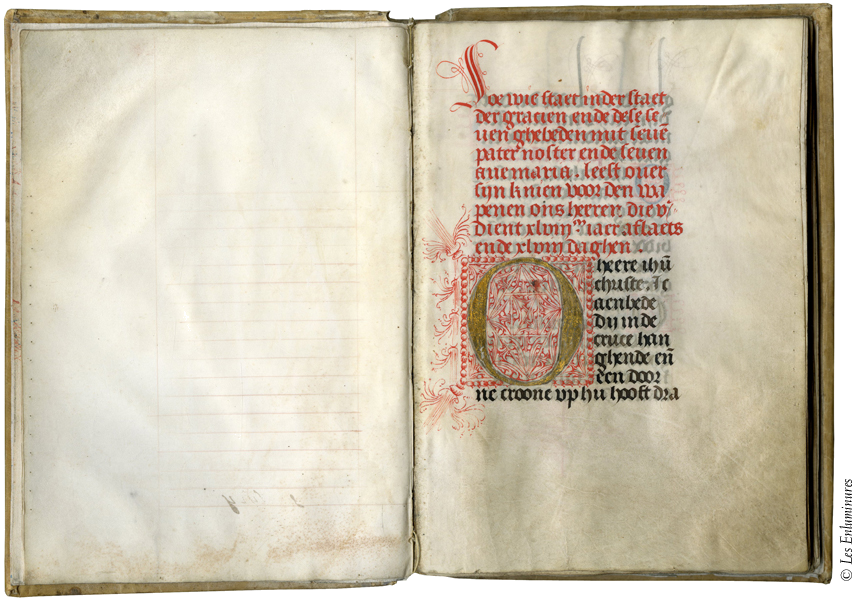 Soe wie staet in der staet
der gracien ende dese se
uen ghebeden mit seuē
pater noster ende seuen
aue maria . leest ouer
sijn knien voor den wa
penen ons herren die v̄
dient xlvim iaer aflaets
ende xlvim daghen
O heere ihū
christe . Ic
aenbede
dij in de
cruce han
ghende eñ
een door
ne croone vp hu hooft dra
© Les Enluminures